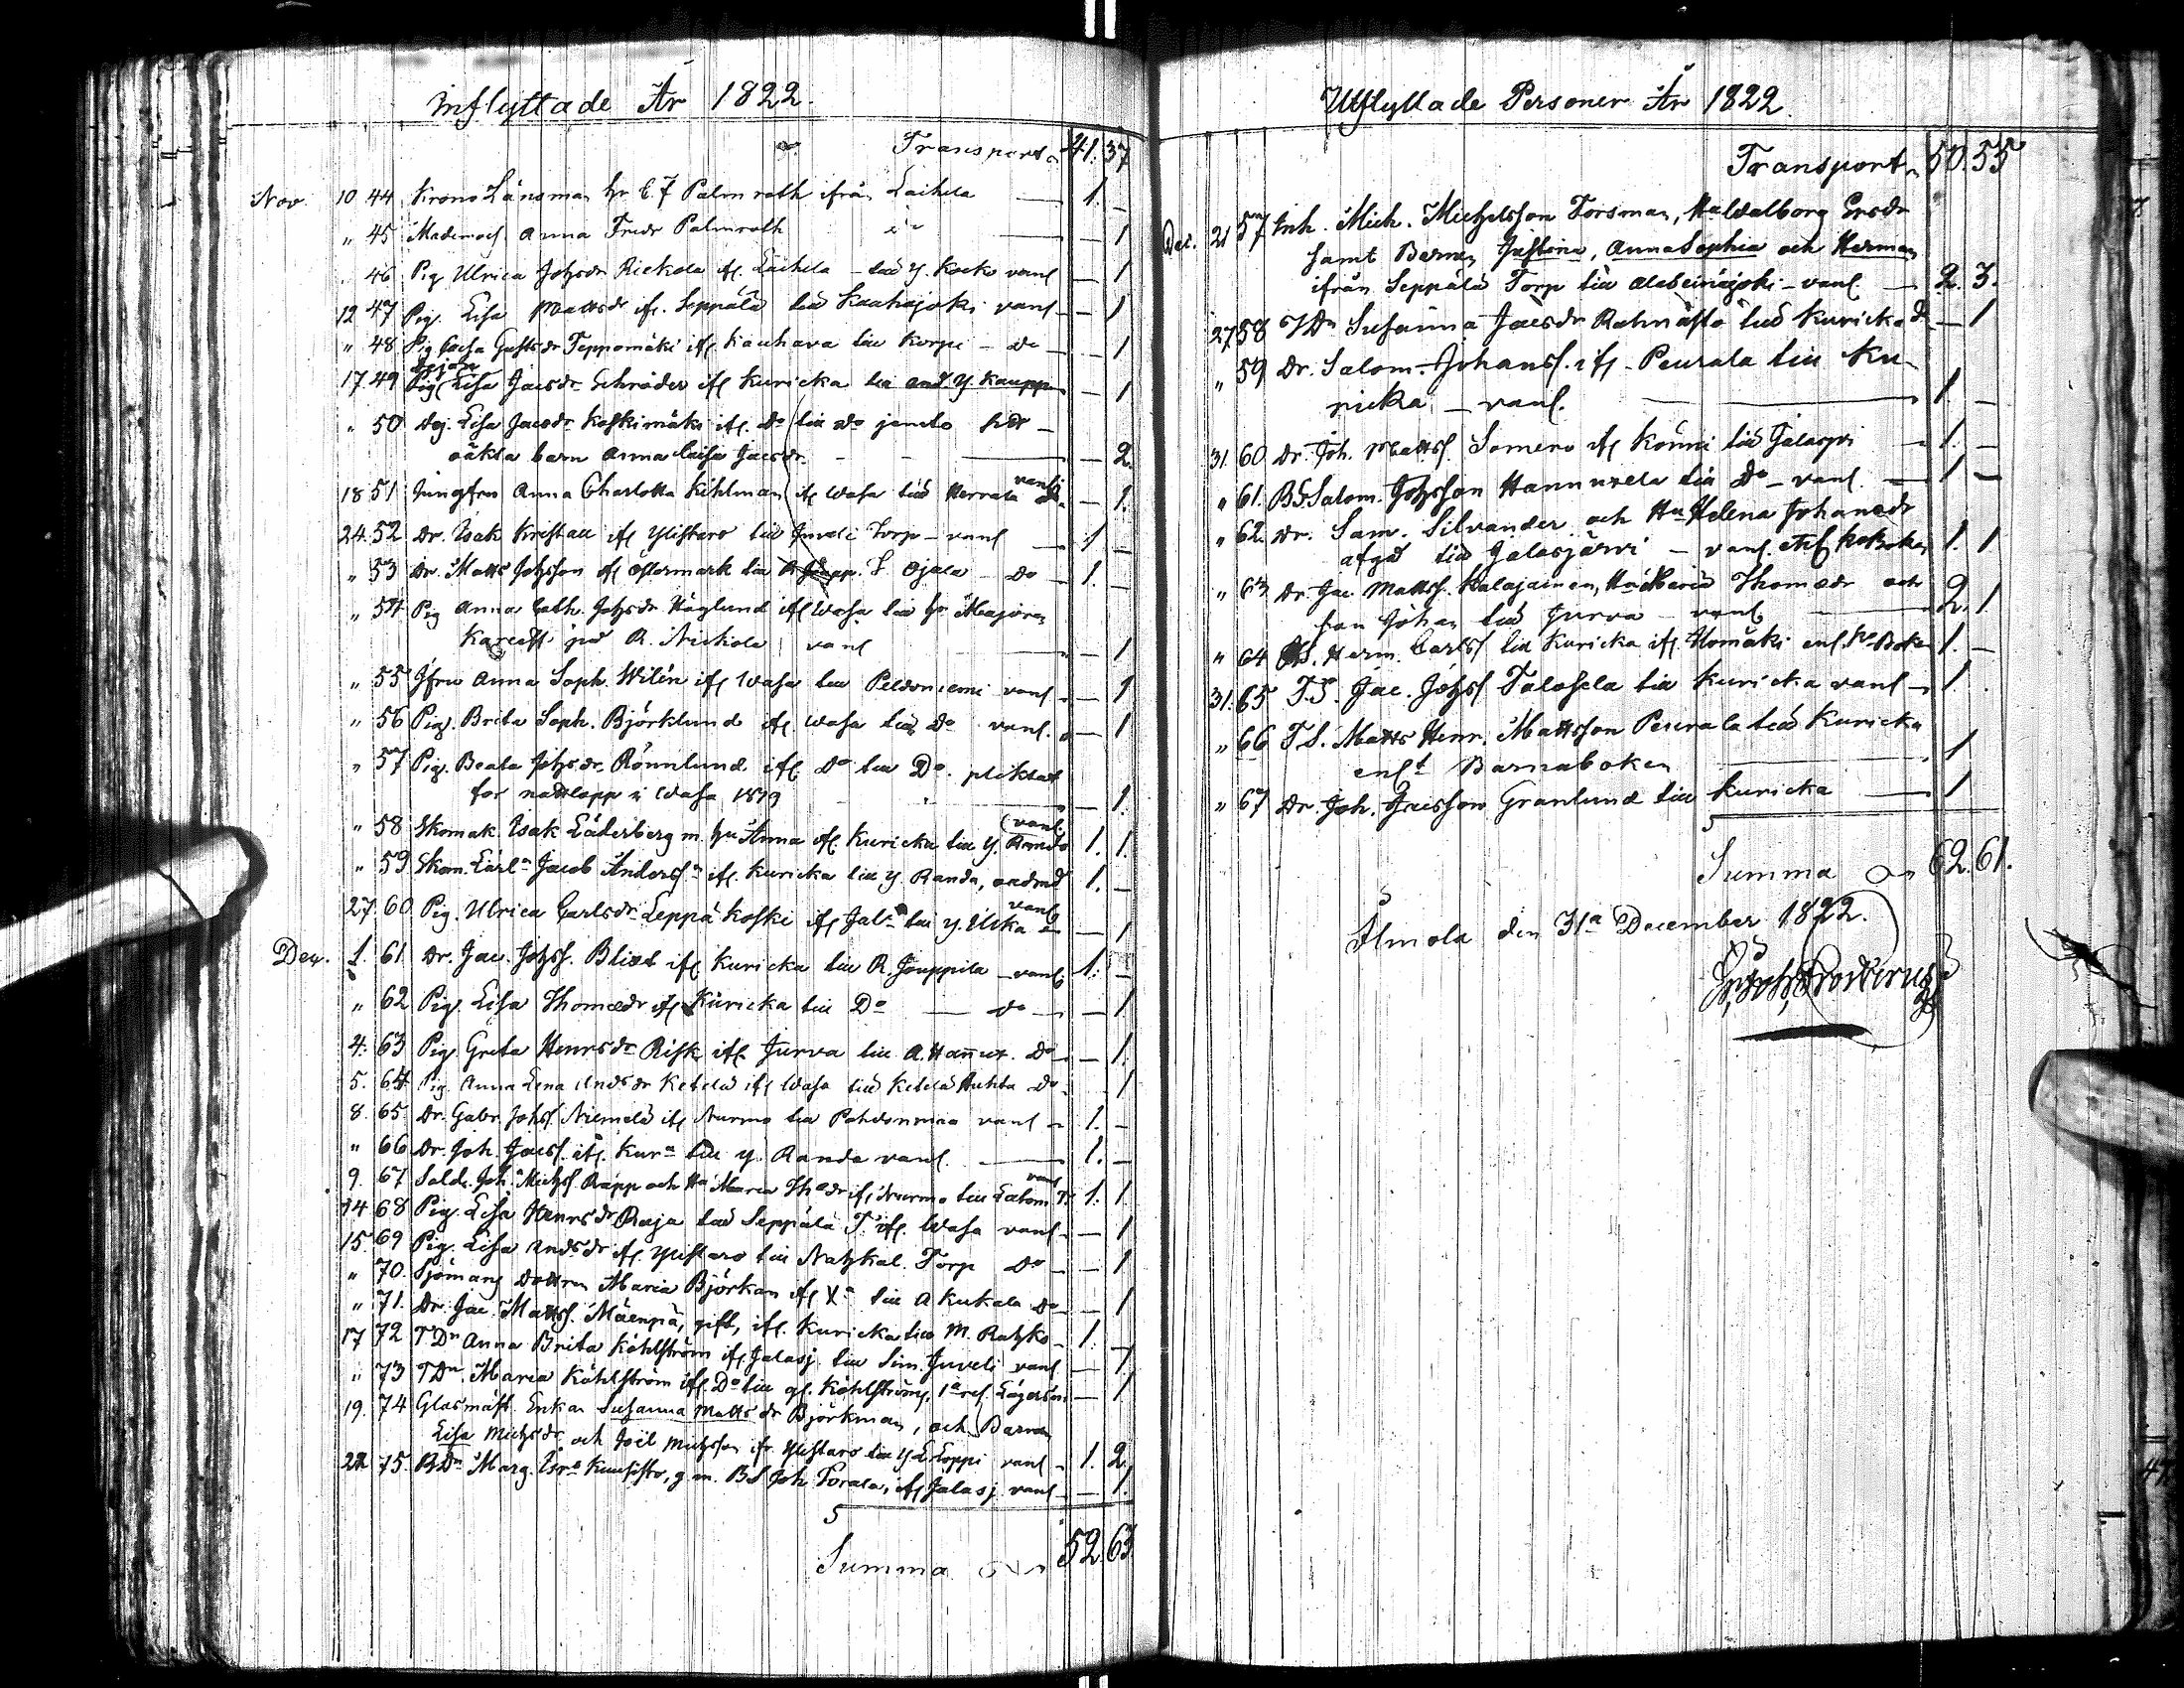 Inflyttade År 1822.
Transport 41. 37
Nov. 10 44 Krono Länsman hr C. F Palmroth ifrån Laihela — 1. —
" 45 Mademois. Anna Fredr Palmroth — 1
46 Pig Ulrica Johsdr Rickola if. Laihela till Y. Kocko vanl — 1
12 47 Pig. Lisa Mattsdr if. Seppälä till Kauhajoki vanl — 1
" 48 Pig Caisa Gustsdr Teppomäki if Kauhava till Korpi — Do — 1
Dejan
17 49 Pig Lisa Jacsdr Schröder if Kuricka till Y. Kauppi — 1
" 50 Dej. Lisa Jacsdr Koskimäki if. Do till Do jemte
oäkta barn Anna Caisa Jacsdr. — 2.
vanl
18 51 Jungfru Anna Charlotta Kihlman if Wasa till Herrala — 1.
24. 52 Dr. Isak Kristall if Ylistaro till Juveli Torp — vanl — 1 —
" 53 Dr. Matts Johsson if Östermark till Ojala — Do — 1. —
" 54 Pig Anna Cath. Johsdr Häglund if Wasa till hr Majoren
på R. Nickola vanl — 1
" 55 Jfru Anna Soph. Wilén if Wasa till Peldoniemi vanl — 1
" 56 Pig. Brita Soph. Björklund if Wasa till Do vanl. — 1
" 57 Pig. Beata Johsdr Rönnlund if Do till Do. pliktat
för nattlopp i Wasa 1819 — 1.
(vanl.
" 58 Skomak. Isak Läderberg m. hu Anna if. Kuricka till Y. Randa 1. 1.
" 59 Skom. Lärl Jacob Anders if. Kuricka till Y. Randa, 1. —
vanl
27. 60 Pig. Ulrica Carlsdr Leppäkoski if Jal till Y. — 1
Dec. 1. 61 Dr. Jac. Johss. Blixt if Kuricka till R. Jouppila — vanl 1. —
" 62 Pig. Lisa Thomædr if Kuricka till Do — do — 1
4. 63 Pig. Greta Henrsdr Risk if Jurva till A. Hannux. Do — 1.
5. 64 Pig. Anna Lena Andsdr Ketola if Wasa till Ketola Huhta Do 1
8. 65 Dr. Gabr. Johs Niemelä if Nurmo till Pohdonmaa vanl — 1. —
" 66 Dr. Joh. Jacss. if. Kur till Y. Randa vanl. — 1. —
vanl
9. 67 Sold. Joh. Michss Rapp och Hu Maria Thdr if Nurmo till 1. 1
14 68 Pig. Lisa Henrsdr Raja till Seppälä T. if. Wasa vanl — 1
15. 69 Pig. Lisa Andsdr if Ylistaro till Torp Do — 1
" 70. Sjömans Dottren Maria Björkan if till A Kukala Do — 1
" 71. Dr. Jac. Matts. Mäenpä, gift, if. Kuricka till M. 1. —
17 72 TDr Anna Brita Köhlström if Jalasj. till Sim. Juveli vanl — 1
" 73 TDr. Maria Köhlström if. Do till Köhlström, — 1.
19. 74 Glasmäst. Enkan Susanna Mattsdr Björkman, och Barnen
Lisa Michsdr och Joël Michsson if. Ylistaro till Y. L. Loppi vanl — 1. 2.
22 75. BDr Marg. Kuusisto, g. m. BS Joh Torala, if Jalasj vanl — 1.
Summa 52. 63
Utflyttade Personer År 1822.
Transport 50. 55
Dec. 21 57 Inh. Mich. Michelsson Forsman, Hu Walborg Ersdr
samt Barnen Justina, Anna Sophia och Herman
ifrån Seppälä Torp till Alaseinäjoki — vanl — 2. 3.
27 58 Susanna Jacsdr till Kuricka — 1
" 59 Dr. Salom. Johanss. if. Peurala till Ku-
ricka — vanl. — 1 —
31. 60 Dr. Joh. Mattss. Somero if Könni till Jalasjvi — 1. —
" 61. BS. Salom. Johsson Hannuxela till Do — vanl. — 1 —
" 62. Dr. Sam. Silvander och Hu Helena Johansdr
afgd till Jalasjärvi — vanl. 1. 1
" 63 Dr. Jac Mattss. Kalajainen, Hu Maria Thomædr och
son Johan till Jurva — vanl — 2. 1
" 64 Herm. Carlss till Kuricka if Homäki enl. 1. —
31. 65 T.S. Jac. Johss Talosela till Kuricka vanl — 1.
" 66 T S. Matts Henr. Mattsson Peurala till Kuricka
enlt Barnaboken — 1
" 67 Dr. Joh. Jacsson Granlund till Kuricka — 1
Summa 62. 61.
Ilmola den 31a December 1822.